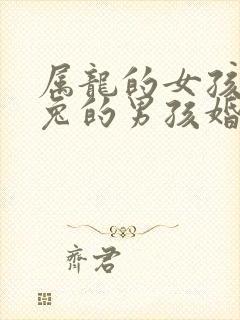 属龍的女孩
兔的男孩婚
齊君